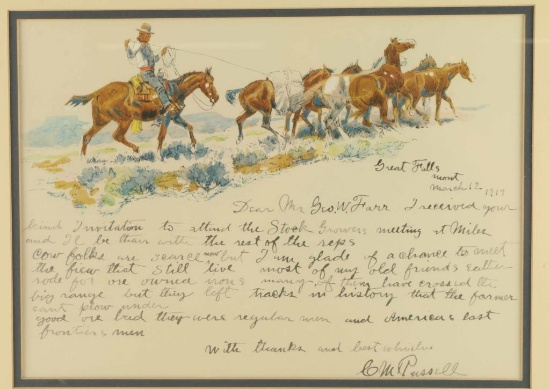 Great Falls
mont
March 12 1917
Dear Mr Geo. W. Farr I received your
kind Invitation to attend the Stock Growers meeting at Miles
and I'll be thair with the rest of the reps
Cow folks are scarce now but I am glade of a chance to meet
the fiew that still live most of my old friends eather
rode for ore owned irons many of them have crossed the
big range but they left tracks in history that the farmer
cant plow under
good ore bad they were regular men and Americas last
frontiers men
With thanks and best whishes
C M Russell